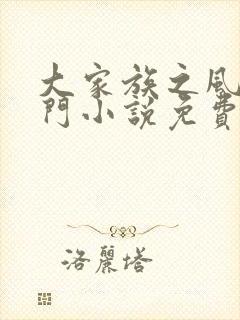 大家族之風
門小説免費
洛麗塔